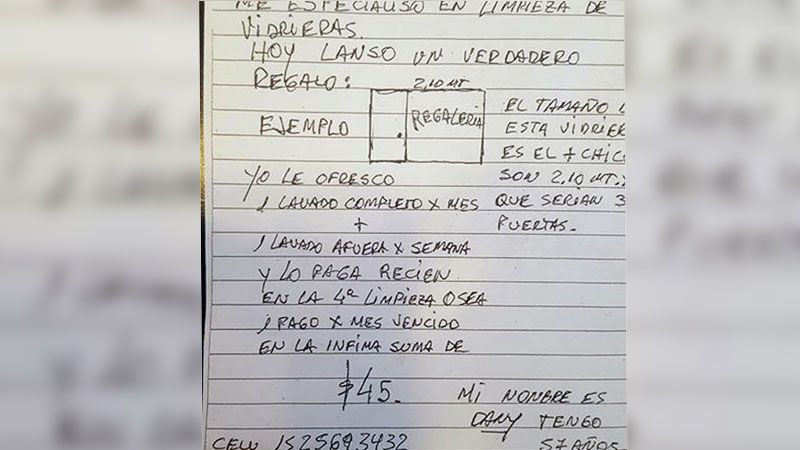 ME ESPECIALISO EN LIMPIEZA DE
VIDRIERAS.
HOY LANSO UN VERDADERO
REGALO:
2,10 MT
EJEMPLO
REGALERIA
EL TAMAÑO
ESTA VIDRIER
ES EL + CHIC
SON 2.10 MT.
QUE SERIAN 3
PUERTAS.-
YO LE OFRESCO
1 LAVADO COMPLETO X MES
+
1 LAVADO AFUERA X SEMANA
Y LO PAGA RECIEN
EN LA 4ª LIMPIEZA OSEA
1 PAGO X MES VENCIDO
EN LA INFIMA SUMA DE
$45.-
MI NOMBRE ES
DANY TENGO
57 AÑOS.
CELU 1525693432